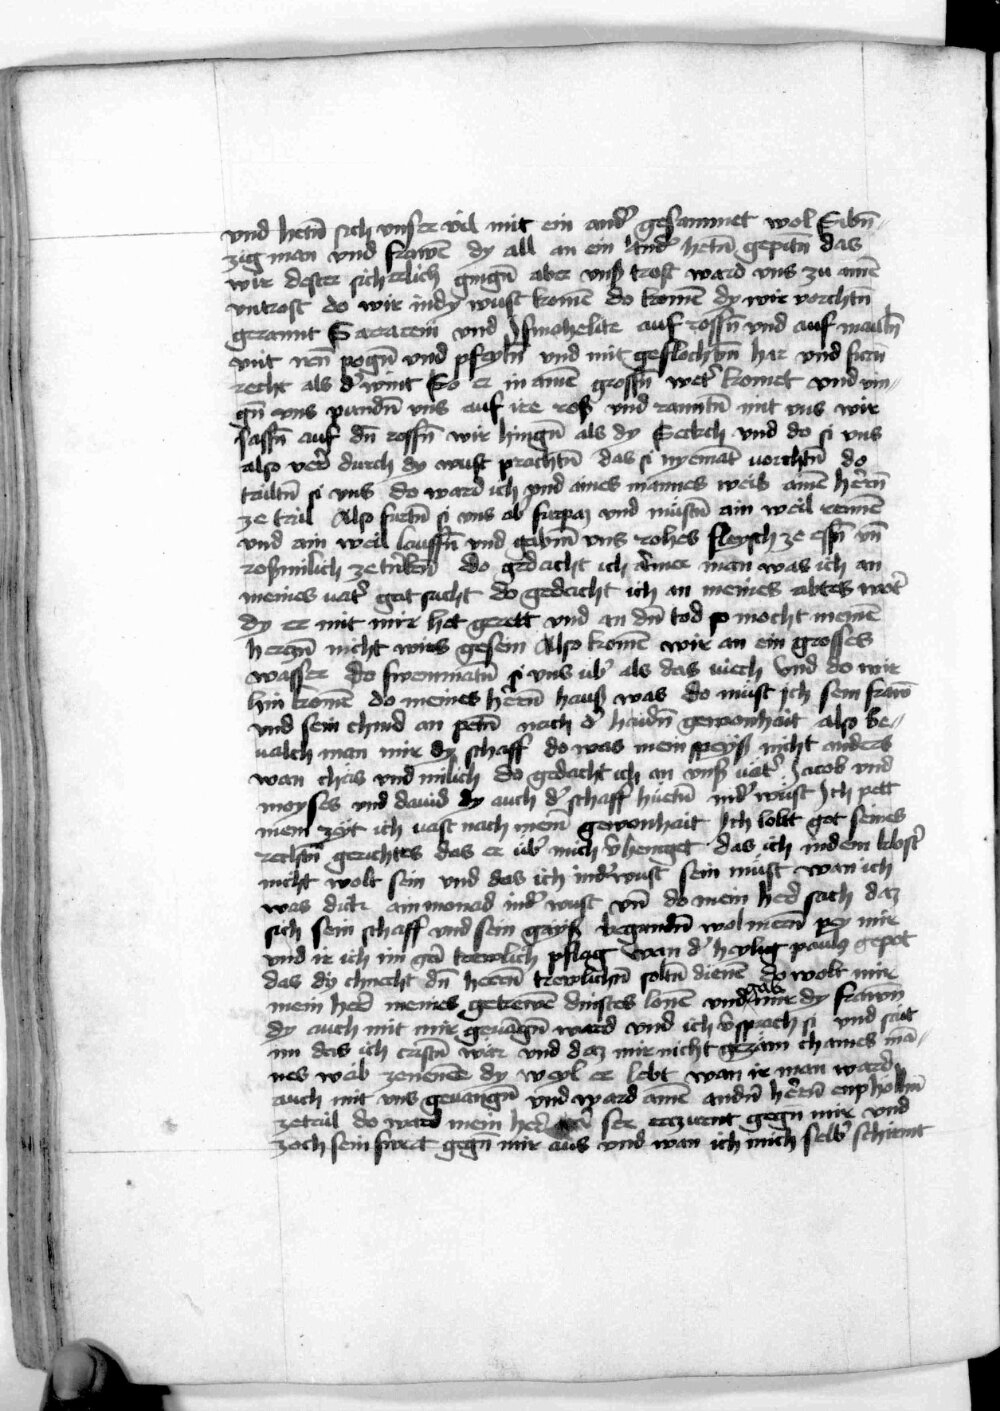 vnd hetn̄ sich vnser vil mit ein andˀ gesammet wol Sibn̄
zig man vnd frawē dy all an ein andˀ hetn̄ gepitn̄ das
wir dester sicherlich gingn̄ aber vnser trost ward vns zu ainē
vntrost do wir in dy wust komē do komē dy wir vorchtn̄
gerannt Sarracein vnd Ismahelite auf rossn̄ vnd auf mauln̄
mit iren pogn̄ vnd pfeyln̄ vnd mit geflochtn̄ har vnd furn̄
recht als dˀ wint so er in ainē grossn̄ wetˀ komet vnd vin
gn̄ vns pundn̄ vns auf ire ros vnd ranntn̄ mit vns wir
sassn̄ auf dn̄ rossn̄ wir hingn̄ als dy Seckch vnd do si vns
also verˀ durch dy wust prachtn̄ das si nyemāt vorchtn̄ do
tailtn̄ si vns do ward ich vnd aines mannes weib ainē herˀn̄
ze tail Also furtn̄ si vns abˀ furpaz vnd mustn̄ ain weil rennē
vnd ain weil lauffn̄ vnd gabn̄ vns rohes fleysch ze essn̄ vn̄
rosmilich ze trinkn̄ do gedacht ich armer man was ich an
meines vatˀ gut sucht do gedacht ich an meines abtes wortˀ
dy er mit mir het gerett vnd an dn̄ tod so mocht meinē
herczn̄ nicht wirs gesein Also komē wir an ein grosses
wasser do swemmatn̄ si vns vbˀ als das viech Vnd do wir
hin komē do meines herˀn̄ haus was do must ich sein frawē
vnd sein chind an petn̄ nach dˀ haidn̄ gewonhait also be
ualch man mir dy schaff do was mein speyß nicht anders
wan chäs vnd milich do gedacht ich an vnser vatˀ Jacob vnd
moyses vnd dauid dy auch dˀ schaff hüetn̄ in dˀ wüst Ich pett
mein zeit ich vast nach meinˀ gewonhait Ich lobt got seines
rechtn̄ gerichtes das er übˀ mich vˀhenget das ich in dem klostˀ
nicht wolt sein vnd das ich in dˀ wust sein müst wan ich
was dick ain monad in dˀ wust vn̄ do mein herˀ sach daz
sich sein schaff vnd sein gayß begundn̄ wol mern̄ pey mir
vnd ir ich im gar trewlich pflag wan dˀ heylig paulꝰ gepot
das dy chnecht dn̄ herrn̄ trewlichn̄ soltn̄ dienē do wolt mir
mein herˀ meines getrewē dinstes lonē vnd gab mir dy frawn̄
dy auch mit mir geuāgn̄ ward vnd ich vˀsprach si vnd sait
im das ich cristn̄ wär vnd daz mir nicht gezäm chaines mā
nes weib ze nemē dy weyl er lebt wan ir man ward
auch mit vns geuangn̄ vnd ward ainē andn̄ herˀn̄ enpholhn̄
ze tail do ward mein herˀ ser erzurent gegn mir vnd
zoch sein swert gegn̄ mir aus vnd wan ich mich selbˀ schirmt